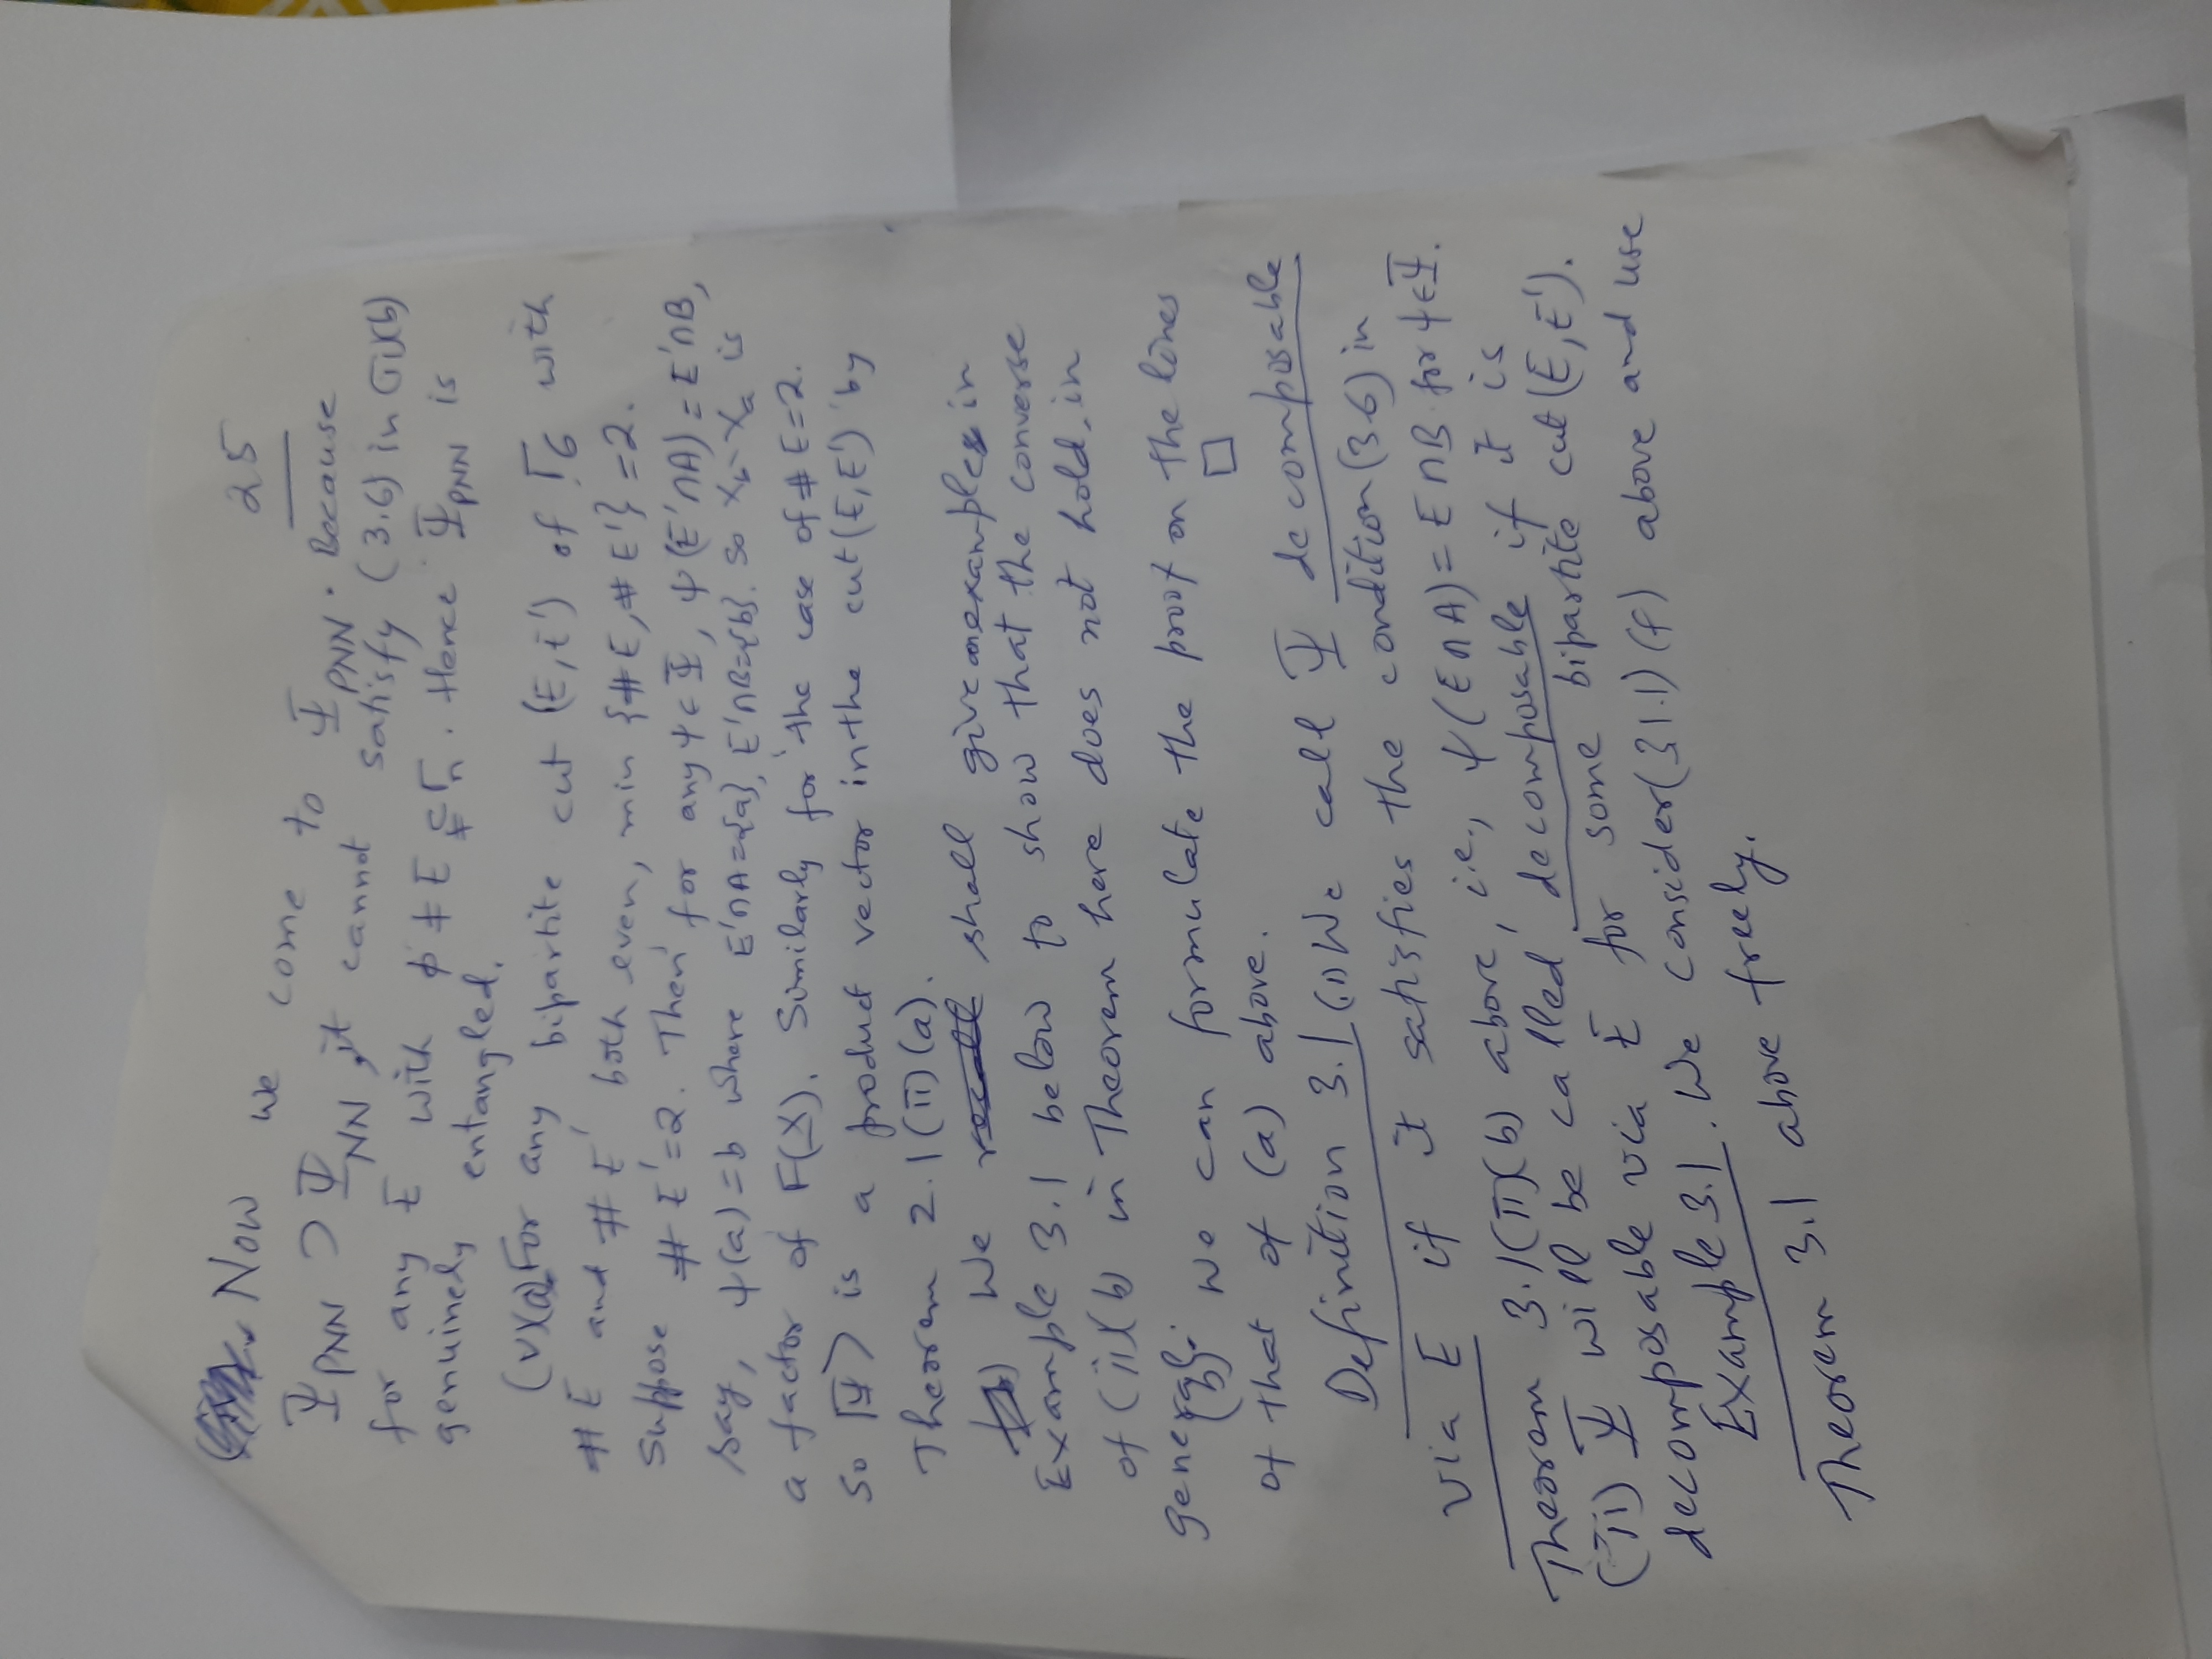 25
Now we come to Ψ_PNN. Because
Ψ_PNN ⊃ Ψ_NN, it cannot satisfy (3.6) in (ii)(b)
for any E with φ ≠ E ⊊ Γ_n. Hence Ψ_PNN is
genuinely entangled.
(v)(a) For any bipartite cut (E, E') of Γ_6 with
#E and #E' both even, min {#E, #E'} = 2.
Suppose #E' = 2. Then for any ψ ∈ Ψ, ψ(E'∩A) = E'∩B,
say, ψ(a) = b where E'∩A={a}, E'∩B={b}. So X_b - X_a is
a factor of F(X). Similarly for the case of #E=2.
So |Ψ⟩ is a product vector in the cut (E, E') by
Theorem 2.1 (ii) (a).
We shall give an example in
Example 3.1 below to show that the converse
of (ii)(b) in Theorem here does not hold, in
general.
(b) We can formulate the proof on the lines
of that of (a) above. □
Definition 3.1 (i) We call Ψ decomposable
via E if it satisfies the condition (3.6) in
Theorem 3.1 (ii)(b) above, i.e., ψ(E∩A) = E∩B for ψ∈Ψ.
(ii) Ψ will be called decomposable if it is
decomposable via E for some bipartite cut (E, E').
Example 3.1. We consider (3.1.1) (f) above and use
Theorem 3.1 above freely.